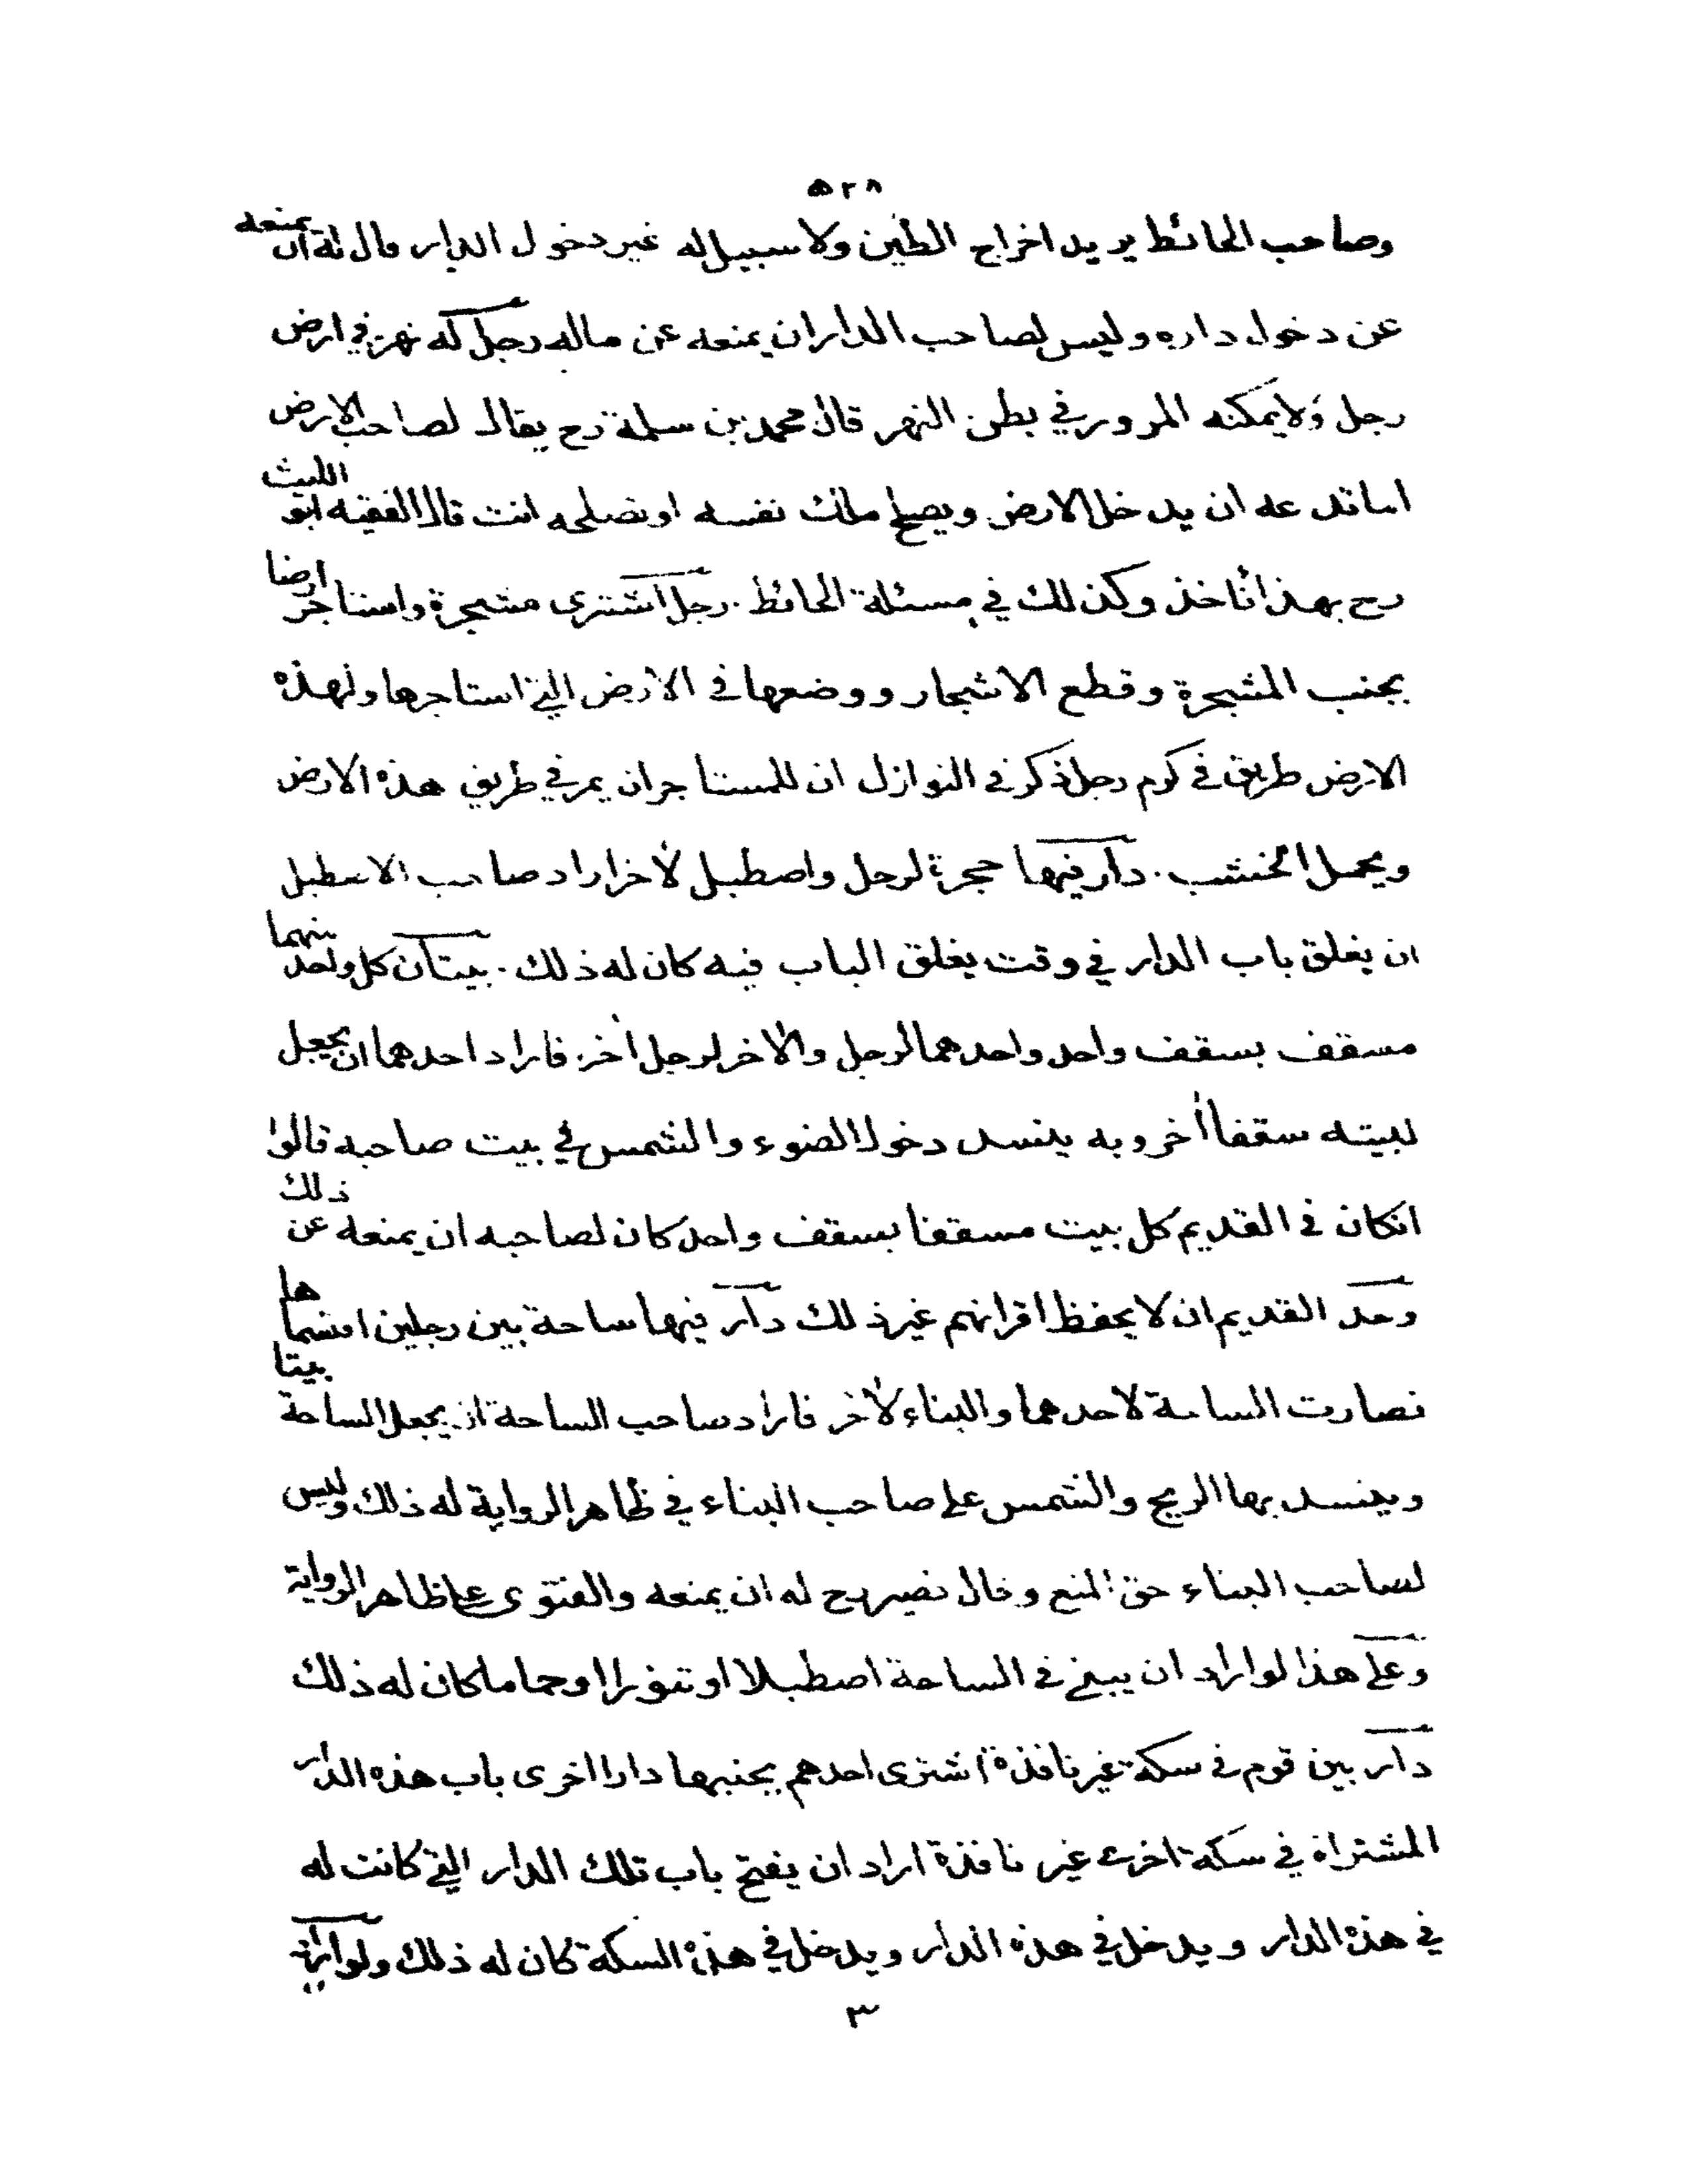 ٥٢٨
وصاحب الحائط يريد اخراج الطين ولا سبيل له غير دخول الدار قال له ان يمنعه
عن دخول داره وليس لصاحب الدار ان يمنعه عن ماله رجل له نهر في ارض
رجل ولا يمكنه المرور في بطن النهر قال محمد بن سلمة رح يقال لصاحب الارض
اما تدعه ان يدخل الارض ويصلح ملك نفسه او تصلحه انت قال الفقيه ابو الليث
رح بهذا ناخذ وكذلك في مسئلة الحائط . رجل اشترى مشجرة واستاجر ارضا
بجنب المشجرة وقطع الاشجار ووضعها في الارض التي استاجرها ولهذه
الارض طريق في كرم رجل ذكر في النوازل ان للمستاجر ان يمر في طريق هذه الارض
ويحمل الخشب . دار فيها حجرة لرجل واصطبل لآخر اراد صاحب الاسطبل
ان يغلق باب الدار في وقت يغلق الباب فيه كان له ذلك . بيتان كل واحد منهما
مسقف بسقف واحد واحدهما لرجل والآخر لرجل اخر فاراد احدهما ان يجعل
لبيته سقفا أخر وبه ينسد دخول الضوء والشمس في بيت صاحبه قالوا
انكان في القديم كل بيت مسقفا بسقف واحد كان لصاحبه ان يمنعه عن ذلك
وحد القديم ان لا يحفظ اقرانهم غير ذلك دار فيها ساحة بين رجلين اقتسماها
فصارت الساحة لاحدهما والبناء لآخر فاراد صاحب الساحة ان يجعل الساحة بيتا
وينسد بها الريح والشمس على صاحب البناء في ظاهر الرواية له ذلك وليس
لصاحب البناء حق المنع وقال نصير رح له ان يمنعه والفتوى على ظاهر الرواية
وعلى هذا لو اراد ان يبني في الساحة اصطبلا او تنورا او حماما كان له ذلك
دار بين قوم في سكة غير نافذة اشترى احدهم بجنبها دارا اخرى باب هذه الدار
المشتراة في سكة اخرى غير نافذة اراد ان يفتح باب تلك الدار التي كانت له
في هذه الدار ويدخل في هذه الدار ويدخل في هذه السكة كان له ذلك ولو اراد
٣